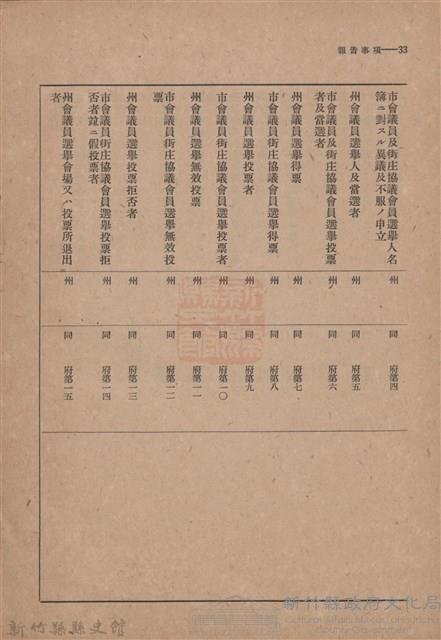 報告事項——33
市會議員及街庄協議會員選擧人名
簿ニ對スル異議及不服ノ申立
州
同
府第四
州會議員選擧人及當選者
州
同
府第五
市會議員及街庄協議會員選擧投票
者及當選者
州
同
府第六
州會議員選擧得票
州
同
府第七
市會議員街庄協議會員選擧得票
州
同
府第八
州會議員選擧投票者
州
同
府第九
市會議員街庄協議會員選擧投票者
州
同
府第一〇
州會議員選擧無效投票
州
同
府第一一
市會議員街庄協議會員選擧無效投
票
州
同
府第一二
州會議員選擧投票拒否者
州
同
府第一三
市會議員街庄協議會員選擧投票拒
否者竝ニ假投票者
州
同
府第一四
州會議員選擧會場又ハ投票所退出
者
州
同
府第一五
新竹縣政府文化局
Cultural Affairs Bureau of Hsinchu
County Government
新竹縣縣史館